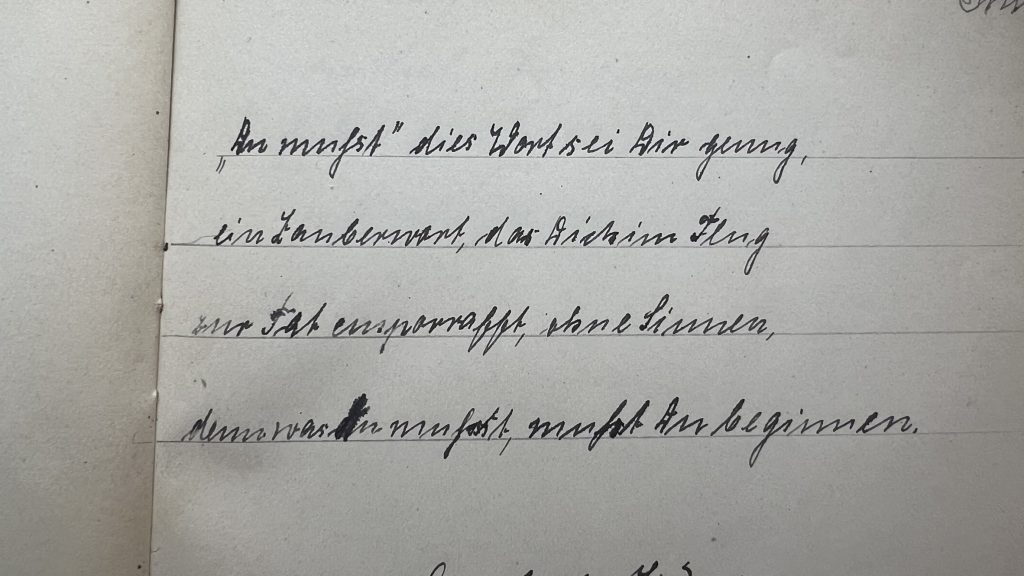 „Du mußst” dies Wort sei Dir genug,
ein Zauberwort, das Dich im Flug
zur Tat emporrafft, ohne Sinnen,
denn was Du mußst, mußt Du beginnen.